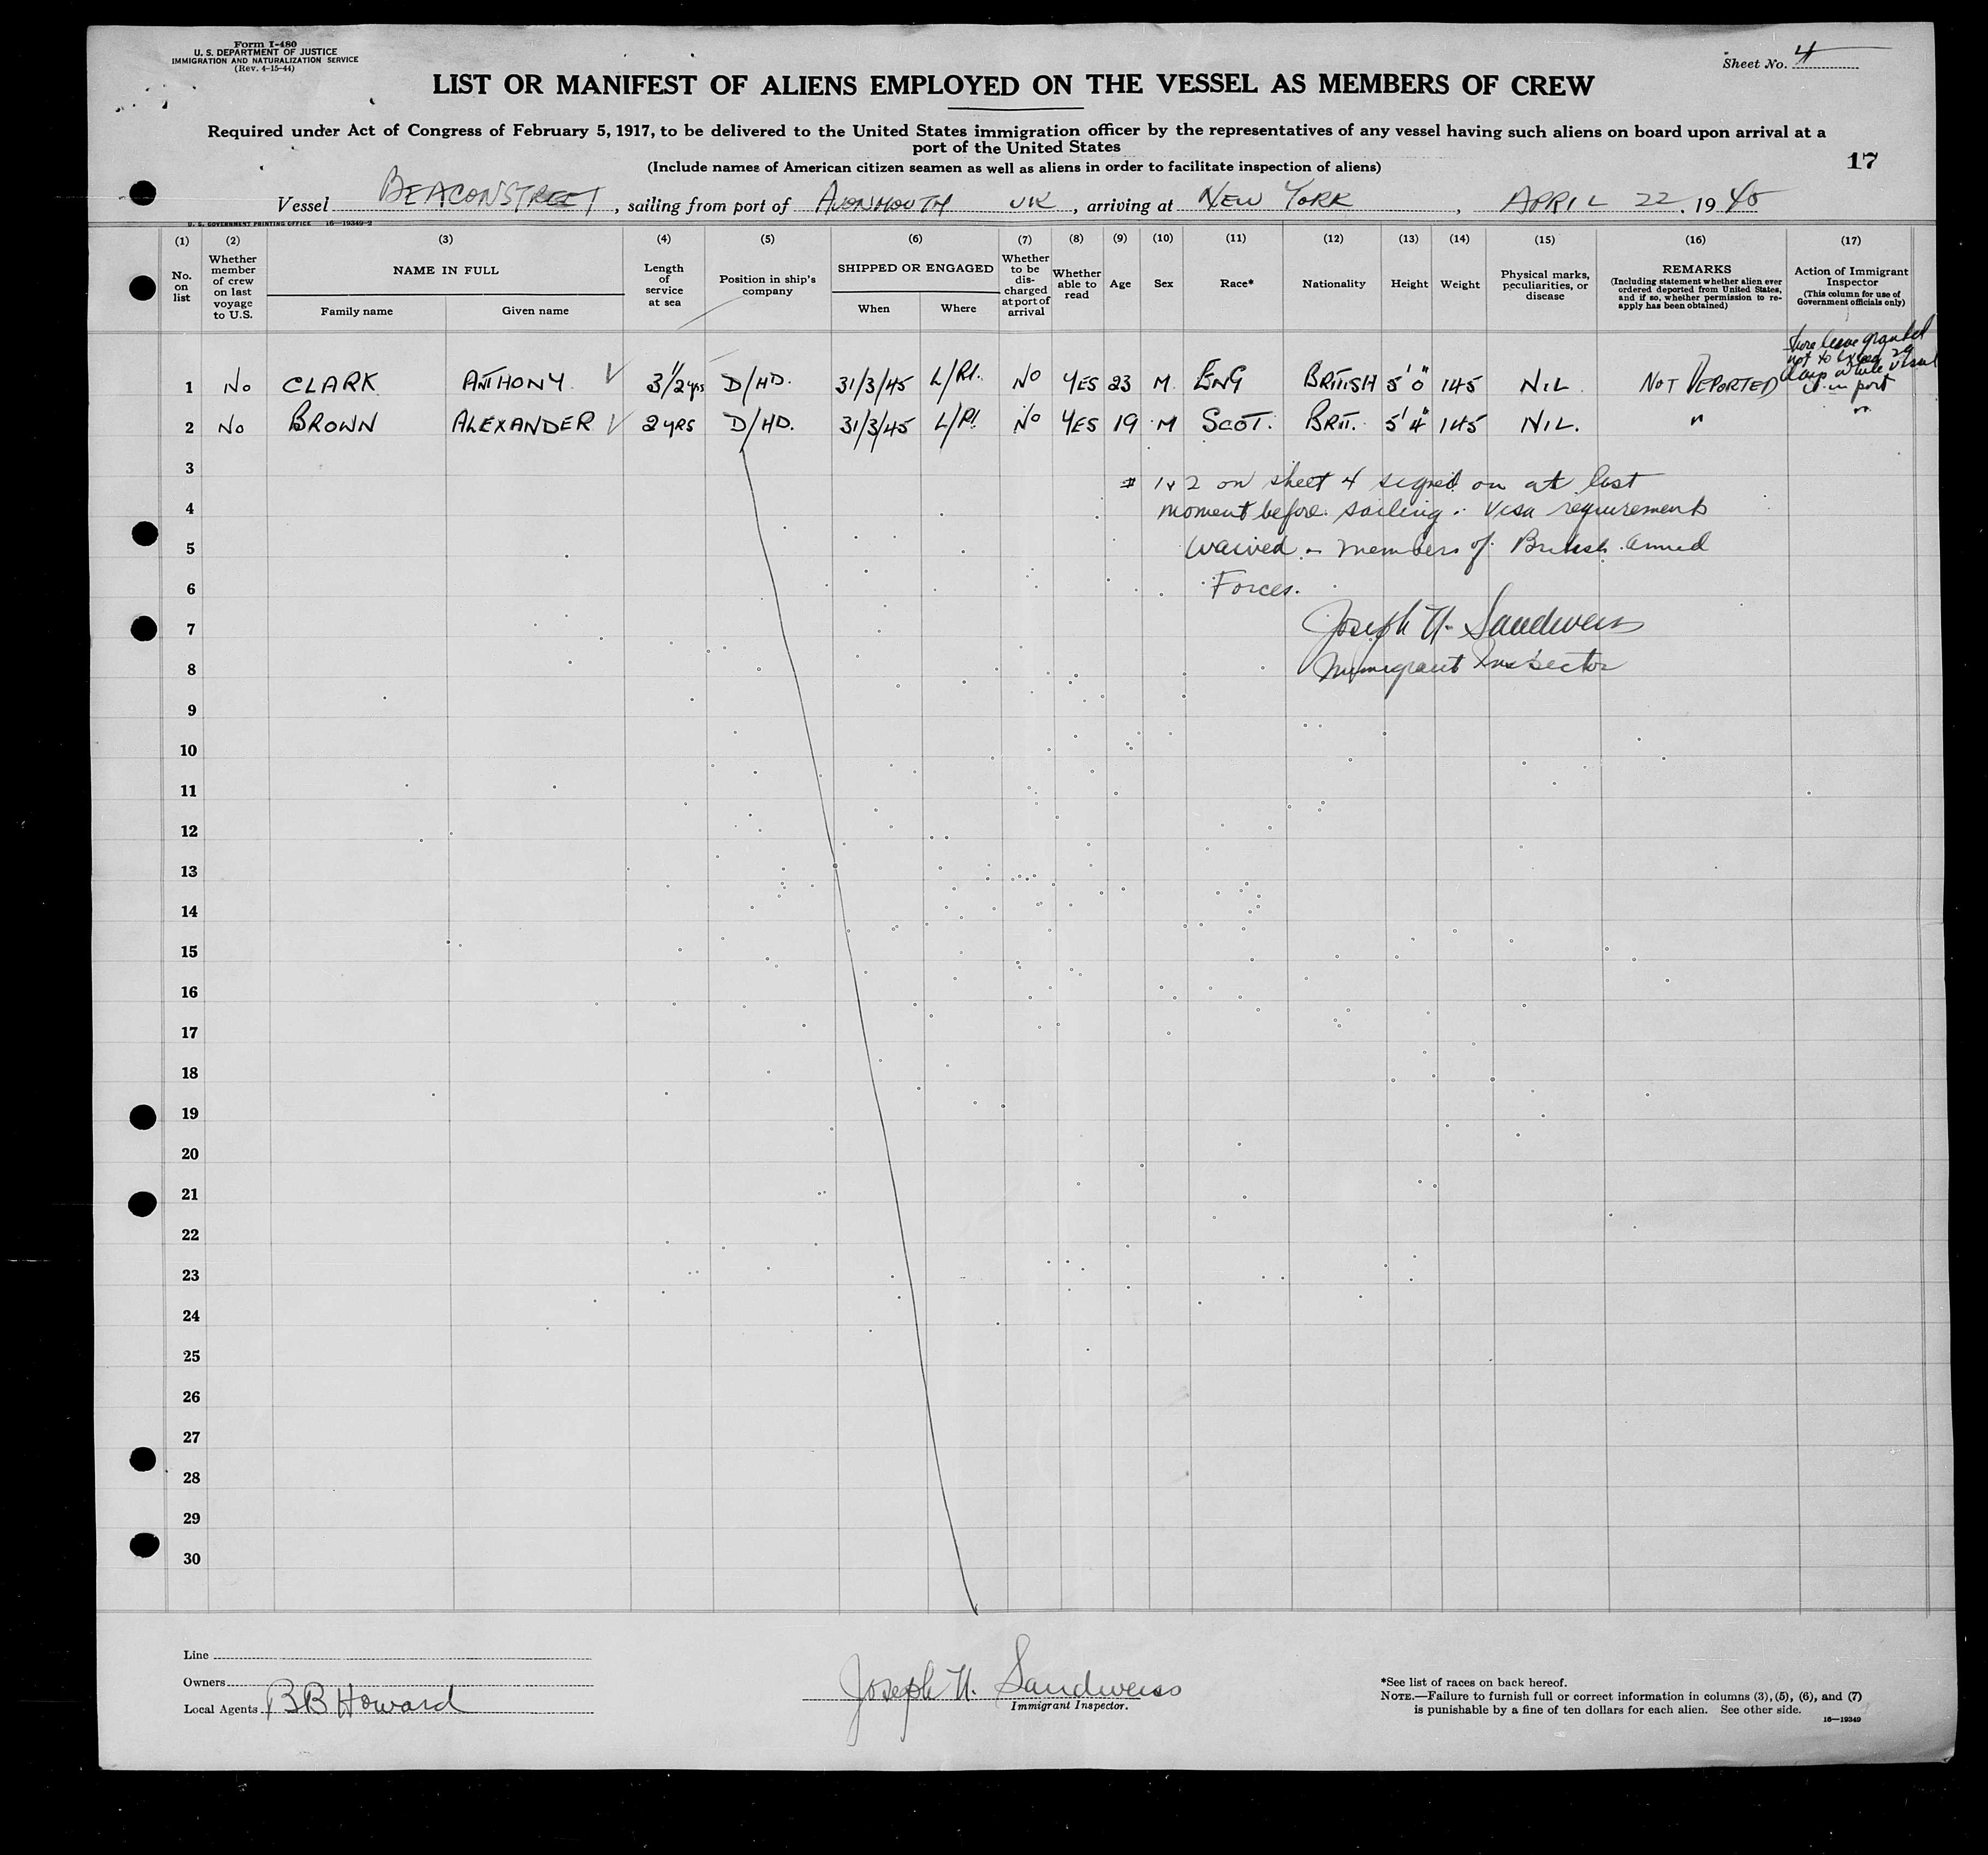 Form I-480
U. S. DEPARTMENT OF JUSTICE
IMMIGRATION AND NATURALIZATION SERVICE
(Rev. 4-15-44)
Sheet No. 4
LIST OR MANIFEST OF ALIENS EMPLOYED ON THE VESSEL AS MEMBERS OF CREW
Required under Act of Congress of February 5, 1917, to be delivered to the United States immigration officer by the representatives of any vessel having such aliens on board upon arrival at a
port of the United States
(Include names of American citizen seamen as well as aliens in order to facilitate inspection of aliens)
17
Vessel BEACONSTREET, sailing from port of AVONMOUTH UK, arriving at NEW YORK, APRIL 22, 1945
U. S. GOVERNMENT PRINTING OFFICE 16—19349-2
(1) (2) (3) (4) (5) (6) (7) (8) (9) (10) (11) (12) (13) (14) (15) (16) (17)
No. on list
Whether member of crew on last voyage to U.S.
NAME IN FULL
Family name Given name
Length of service at sea
Position in ship's company
SHIPPED OR ENGAGED
When Where
Whether to be discharged at port of arrival
Whether able to read
Age
Sex
Race*
Nationality
Height
Weight
Physical marks, peculiarities, or disease
REMARKS
(Including statement whether alien ever ordered deported from United States, and if so, whether permission to reapply has been obtained)
Action of Immigrant Inspector
(This column for use of Government officials only)
Shore leave granted
not to exceed 29
days while vessel
is in port
1 No CLARK ANTHONY V 3 1/2 yrs D/HD. 31/3/45 L/Pl. No YES 23 M. ENG BRITISH 5'0" 145 NIL NOT DEPORTED
2 No BROWN ALEXANDER V 2 YRS D/HD. 31/3/45 L/Pl. No YES 19 M SCOT. BRIT. 5'4" 145 NIL. " "
3
# 1 & 2 on sheet 4 signed on at last
4
moment before sailing. Visa requirements
5
waived - members of British armed
6
Forces.
7
Joseph H. Sandweiss
8
Immigrant Inspector
9
10
11
12
13
14
15
16
17
18
19
20
21
22
23
24
25
26
27
28
29
30
Line
Owners
Local Agents BB Howard
Joseph H. Sandweiss
Immigrant Inspector.
*See list of races on back hereof.
NOTE.—Failure to furnish full or correct information in columns (3), (5), (6), and (7)
is punishable by a fine of ten dollars for each alien. See other side.
16—19349